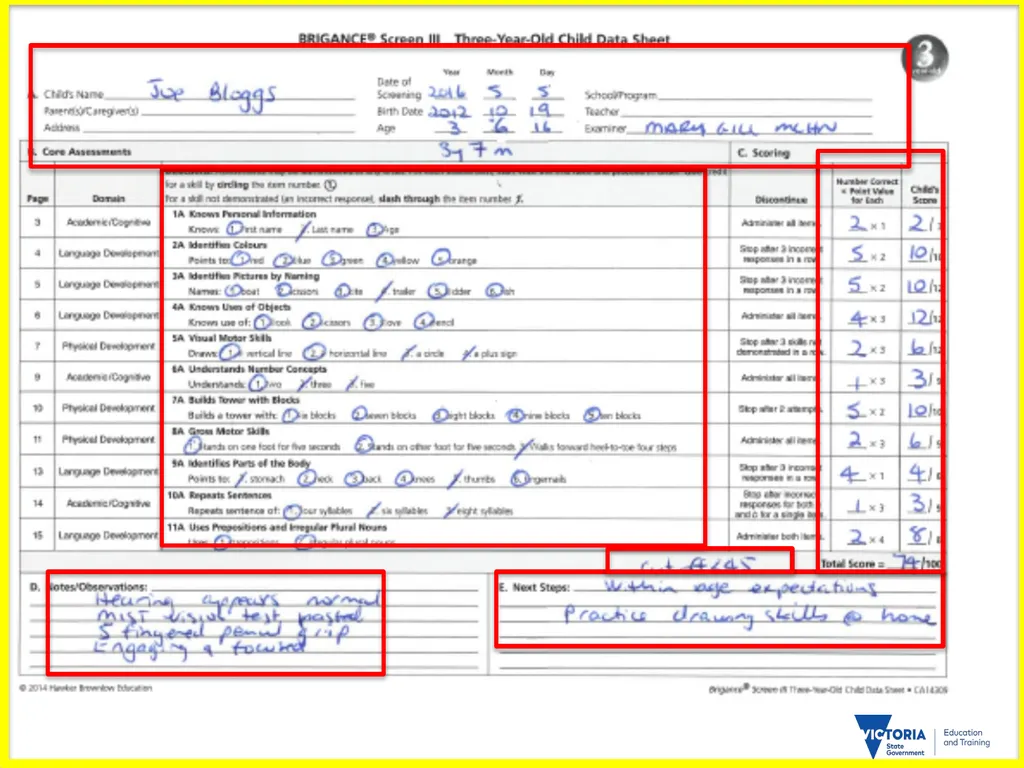 BRIGANCE® Screen III Three-Year-Old Child Data Sheet
3
Year Month Day
Child's Name Joe Bloggs
Date of Screening 2016 5 5
School/Program
Parent(s)/Caregiver(s)
Birth Date 2012 10 19
Teacher
Address
Age 3 6 16
Examiner MARY GILL MCHN
3y 7m
Core Assessments
C. Scoring
for a skill by circling the item number.
For a skill not demonstrated (an incorrect response), slash through the item number
Page Domain Discontinue Number Correct × Point Value for Each Child's Score
3 Academic/Cognitive 1A Knows Personal Information Administer all items. 2 × 1 2/
Knows: 1. First name 2. Last name 3. Age
4 Language Development 2A Identifies Colours Stop after 3 incorrect responses in a row. 5 × 2 10/10
Points to: 1. red 2. blue 3. green 4. yellow 5. orange
5 Language Development 3A Identifies Pictures by Naming Stop after 3 incorrect responses in a row. 5 × 2 10/12
Names: 1. boat 2. scissors 3. kite 4. trailer 5. ladder 6. fish
6 Language Development 4A Knows Uses of Objects Administer all items. 4 × 3 12/12
Knows use of: 1. book 2. scissors 3. stove 4. pencil
7 Physical Development 5A Visual Motor Skills Stop after 3 skills not demonstrated in a row. 2 × 3 6/12
Draws: 1. vertical line 2. horizontal line 3. a circle 4. a plus sign
9 Academic/Cognitive 6A Understands Number Concepts Administer all items. 1 × 3 3/9
Understands: 1. two 2. three 3. five
10 Physical Development 7A Builds Tower with Blocks Stop after 2 attempts. 5 × 2 10/10
Builds a tower with: 1. six blocks 2. seven blocks 3. eight blocks 4. nine blocks 5. ten blocks
11 Physical Development 8A Gross Motor Skills Administer all items. 2 × 3 6/9
1. Stands on one foot for five seconds 2. Stands on other foot for five seconds 3. Walks forward heel-to-toe four steps
13 Language Development 9A Identifies Parts of the Body Stop after 3 incorrect responses in a row. 4 × 1 4/
Points to: 1. stomach 2. neck 3. back 4. knees 5. thumbs 6. fingernails
14 Academic/Cognitive 10A Repeats Sentences Stop after incorrect responses for both a and b for a single item. 1 × 3 3/
Repeats sentence of: 1. four syllables 2. six syllables 3. eight syllables
15 Language Development 11A Uses Prepositions and Irregular Plural Nouns Administer both items. 2 × 4 8/8
Uses: 1. prepositions 2. irregular plural nouns
Total Score = 74/100
D. Notes/Observations:
Hearing appears normal
MIST vision test passed
5 fingered pencil grip
Engaging & focused
E. Next Steps: Within age expectations
Practice drawing skills @ home
© 2014 Hawker Brownlow Education
Brigance® Screen III Three-Year-Old Child Data Sheet • CA14309
VICTORIA
State
Government
Education
and Training